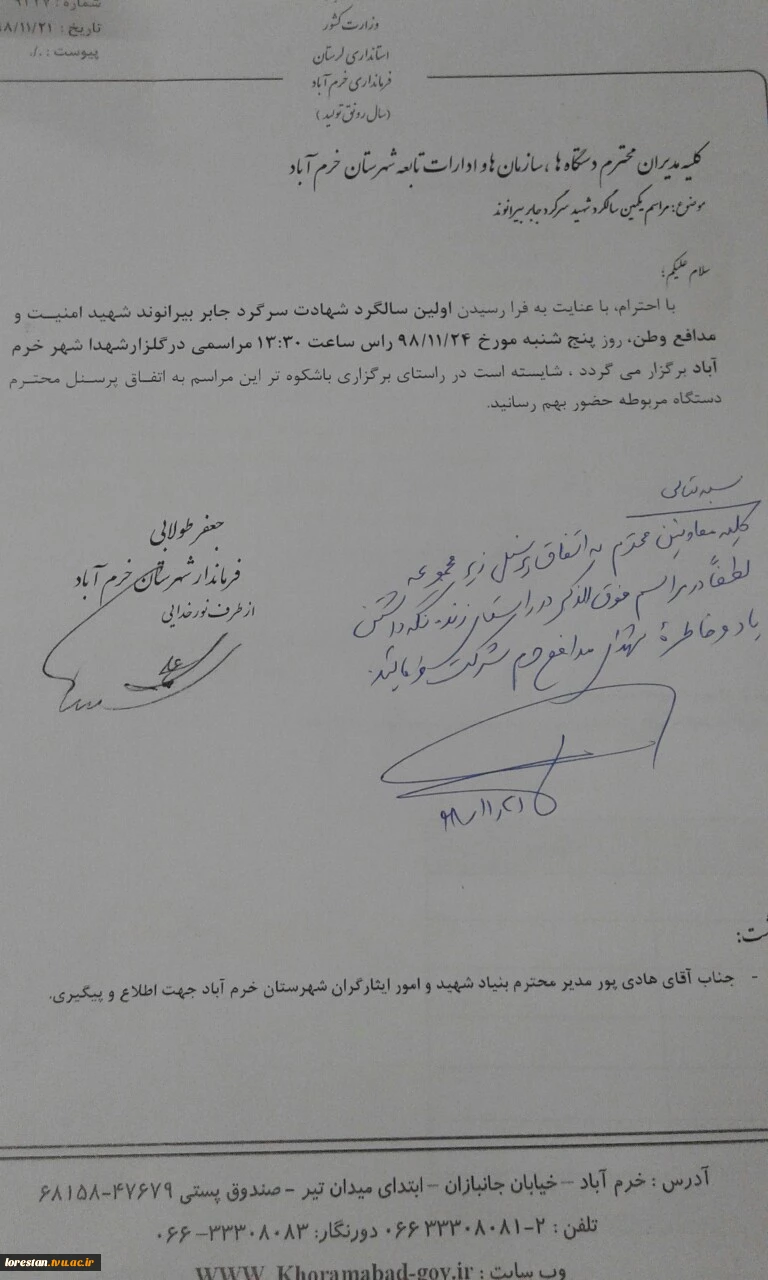 شماره : ۹۱۲۷
تاریخ : ۹۸/۱۱/۲۱
پیوست : ./.
وزارت کشور
استانداری لرستان
فرمانداری خرم آباد
(سال رونق تولید)
کلیه مدیران محترم دستگاه ها ، سازمان ها و ادارات تابعه شهرستان خرم آباد
موضوع: مراسم یکمین سالگرد شهید سرگرد جابر بیرانوند
سلام علیکم؛
با احترام، با عنایت به فرا رسیدن اولین سالگرد شهادت سرگرد جابر بیرانوند شهید امنیت و
مدافع وطن، روز پنج شنبه مورخ ۹۸/۱۱/۲۴ راس ساعت ۱۳:۳۰ مراسمی درگلزارشهدا شهر خرم
آباد برگزار می گردد ، شایسته است در راستای برگزاری باشکوه تر این مراسم به اتفاق پرسنل محترم
دستگاه مربوطه حضور بهم رسانید.
جعفر طولابی
فرماندار شهرستان خرم آباد
از طرف نورخدایی
بسمه تعالی
کلیه معاونین محترم به اتفاق پرسنل زیر مجموعه
لطفاً در مراسم فوق الذکر در راستای زنده نگه داشتن
یاد و خاطرهٔ شهدای مدافع حرم شرکت فرمایند.
۹۸/۱۱/۲۱
شت:
- جناب آقای هادی پور مدیر محترم بنیاد شهید و امور ایثارگران شهرستان خرم آباد جهت اطلاع و پیگیری.
آدرس : خرم آباد – خیابان جانبازان – ابتدای میدان تیر – صندوق پستی ۴۷۶۷۹-۶۸۱۵۸
تلفن : ۲-۳۳۳۰۸۰۸۱ ۰۶۶ دورنگار: ۳۳۳۰۸۰۸۳–۰۶۶
وب سایت : WWW. Khoramabad-gov.ir
lorestan.tvu.ac.ir